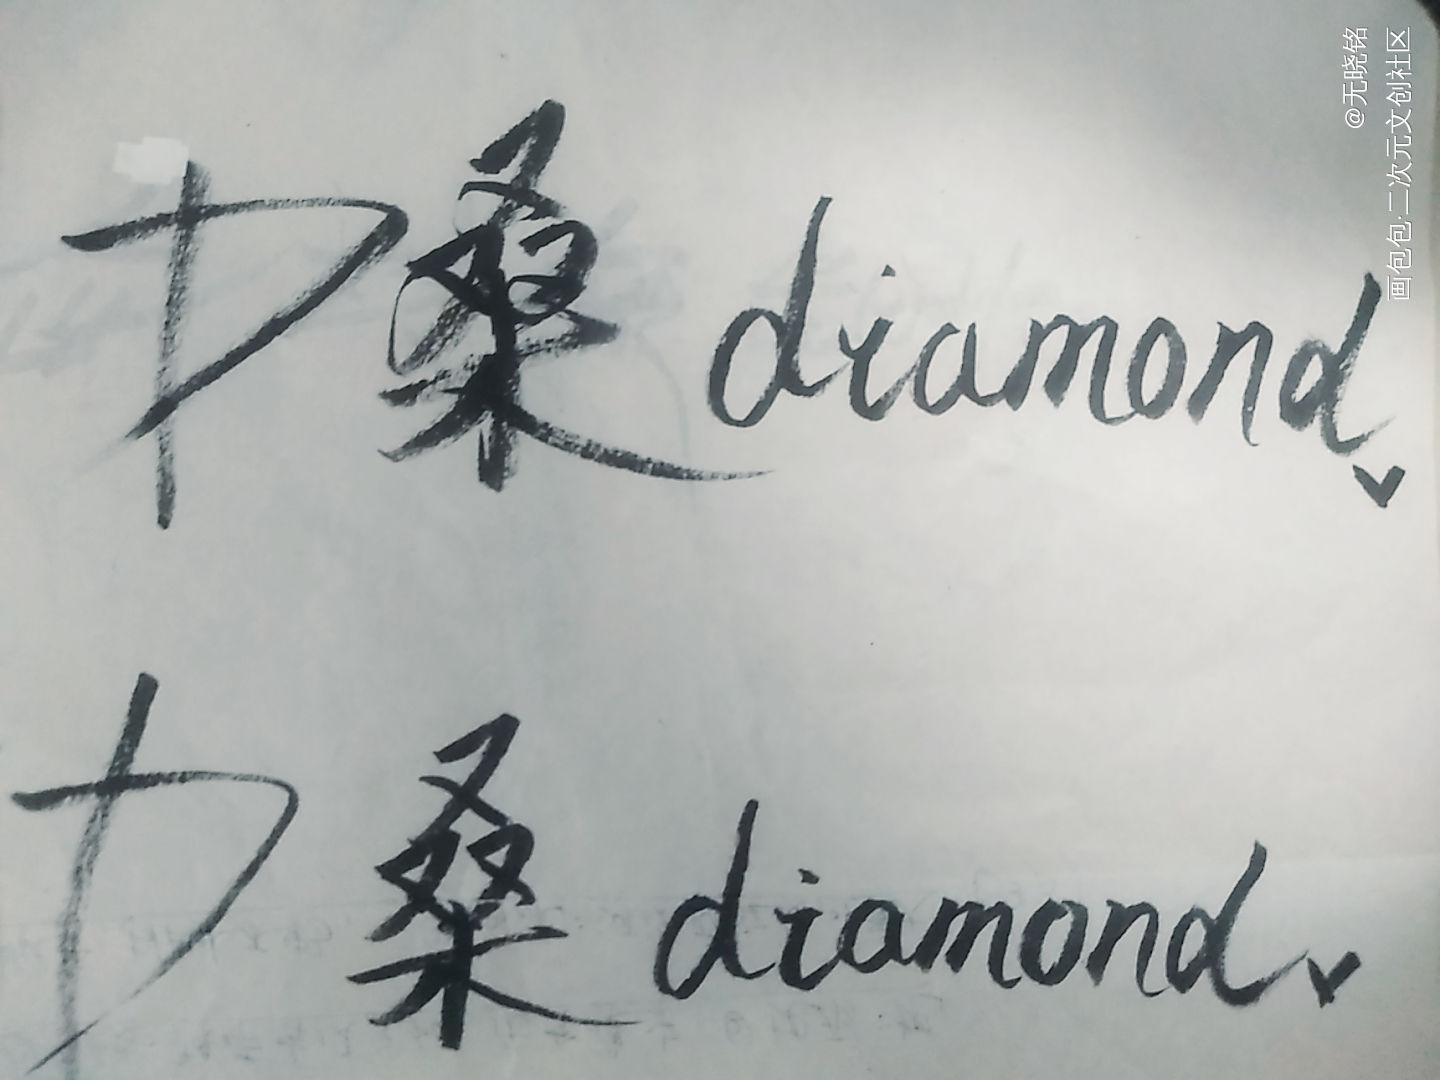 卩桑diamond
卩桑diamond
@无晓铭
画包包·二次元文创社区